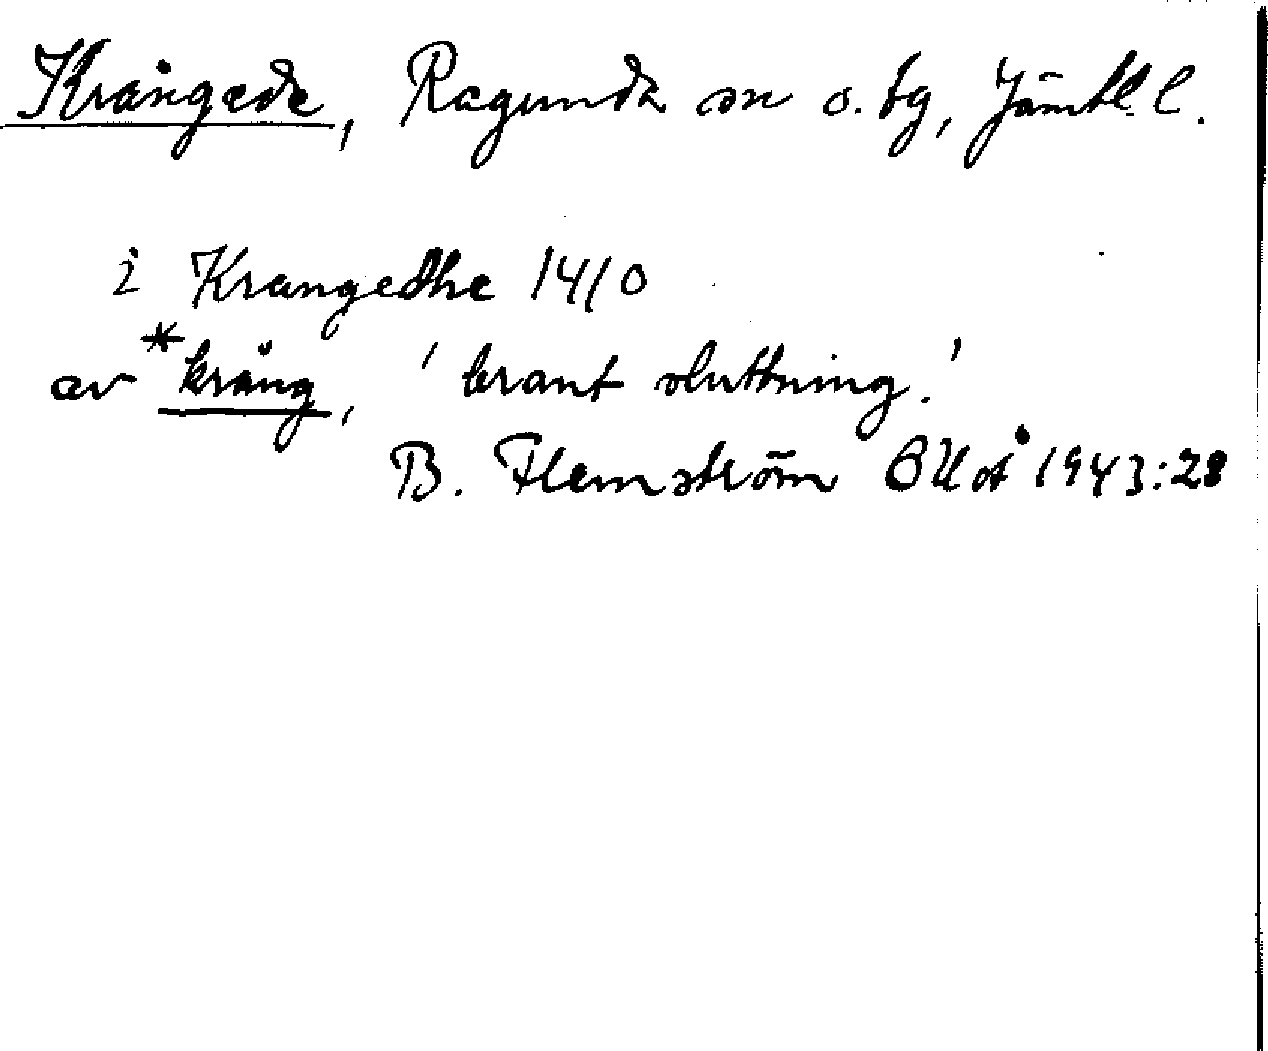 Krångede, Ragunda sn o. tg, Jämtl l.
i Krangedhe 1410
av *krång, 'brant sluttning.'
B. Flemström OUoÅ 1943:28